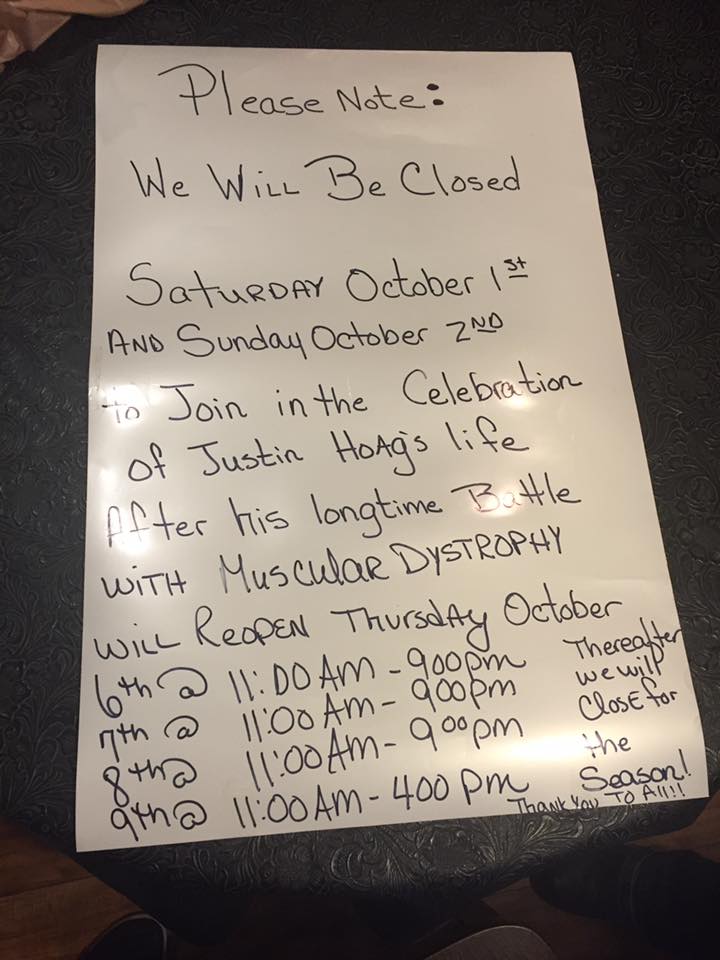 Please Note:
We Will Be Closed
Saturday October 1st
And Sunday October 2nd
to Join in the Celebration
of Justin Hoag's life
After his longtime Battle
With Muscular Dystrophy
Will Reopen Thursday October
6th @ 11:00 AM - 900pm
7th @ 11:00 AM - 900pm
8th @ 11:00 AM - 900pm
9th @ 11:00 AM - 400 pm
Thereafter
we will
Close for
the
Season!
Thank You To All!!